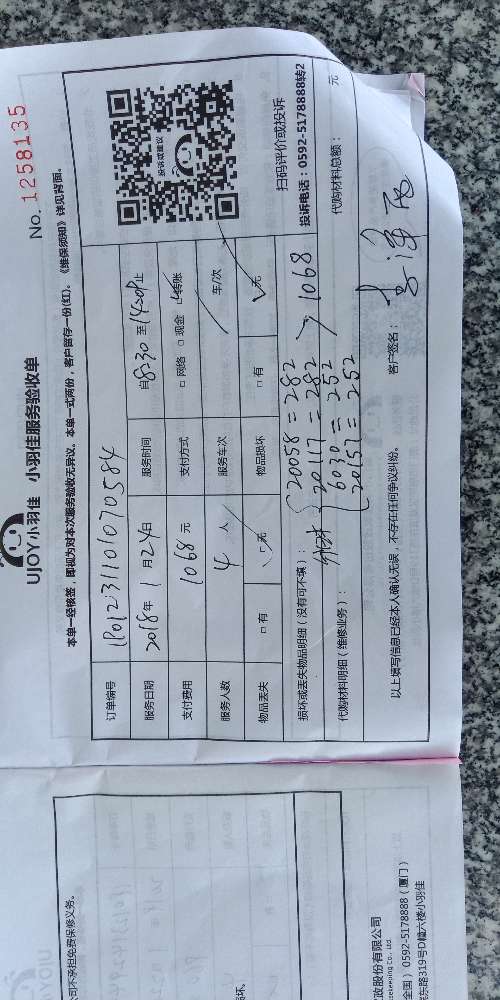 No. 1258135
UJOY小羽佳 小羽佳服务验收单
本单一经核签，即视为对本次服务验收无异议。本单一式两份，客户留存一份(红)。《维保须知》详见背面。
订单编号
服务日期 2018年 1 月 24 日 服务时间 自 8:30 至 14:00 止
支付费用 1068 元 支付方式 □ 网络 □ 现金 □ 转账
服务人数 4 人 服务车次 车/次
物品丢失 □ 有 □ 无 物品损坏 □ 有 □ 无
扫码评价或投诉
投诉电话：0592-5178888转2
损坏或丢失物品明细（没有可不填）：
20058 = 282
20117 = 282
6030 = 252
20157 = 252
1068
代购材料明细（维修业务）： 代购材料总额： 元
以上填写信息已经本人确认无误，不存在任何争议纠纷。 客户签名：
公司不承担免费保修义务。
损坏。
政股份有限公司
全国）0592-5178888（厦门）
东路319号D幢六楼小羽佳